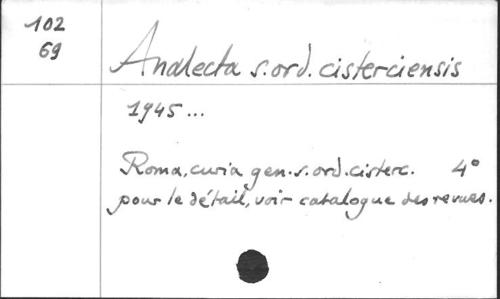 102
69
Analecta s. ord. cisterciensis
1945...
Roma, curia gen. s. ord. cisterc. 4°
pour le détail, voir catalogue des revues.